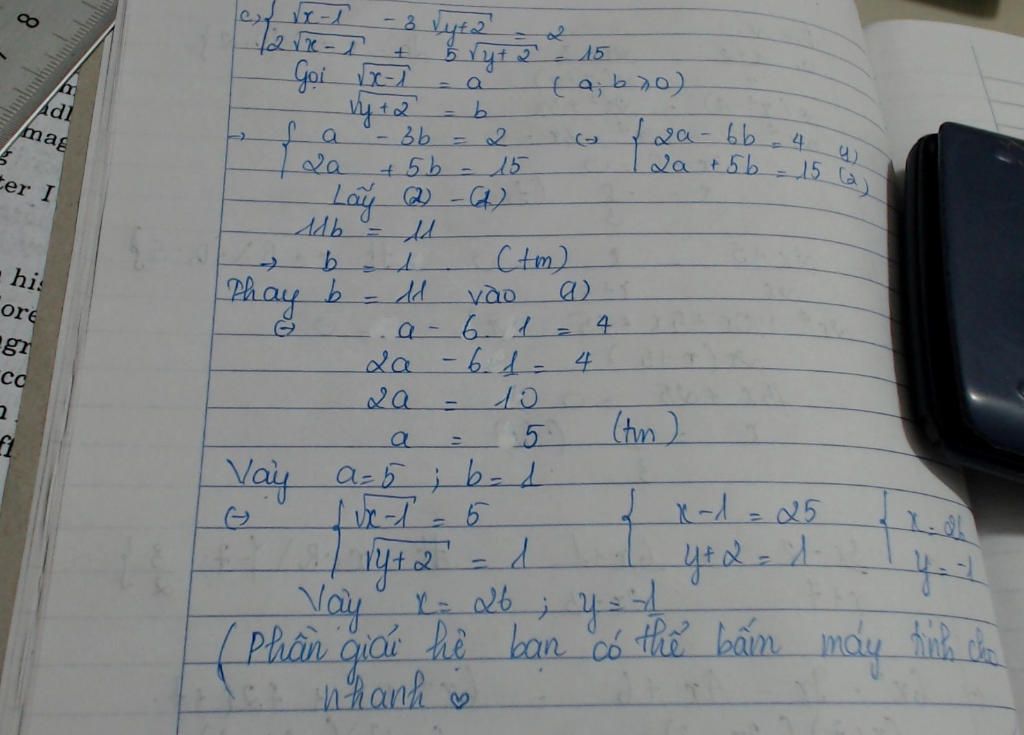 8
m
adl
mag
g
ter I
his
ore
gr
cc
n
f
c) { √x-1 - 3 √y+2 = 2
2√x-1 + 5 √y+2 = 15
Gọi √x-1 = a (a; b ⩾ 0)
√y+2 = b
→ { a - 3b = 2 ⇔ { 2a - 6b = 4 (1)
2a + 5b = 15 2a + 5b = 15 (2)
Lấy (2) - (1)
11b = 11
→ b = 1 (tm)
Thay b = 11 vào (1)
⇔ a - 6.1 = 4
2a - 6.1 = 4
2a = 10
a = 5 (tm)
Vậy a = 5 ; b = 1
⇔ { √x-1 = 5 { x-1 = 25 { x = 26
√y+2 = 1 y+2 = 1 y = -1
Vậy x = 26 ; y = -1
(Phần giải hệ bạn có thể bấm máy tính cho
nhanh ♡